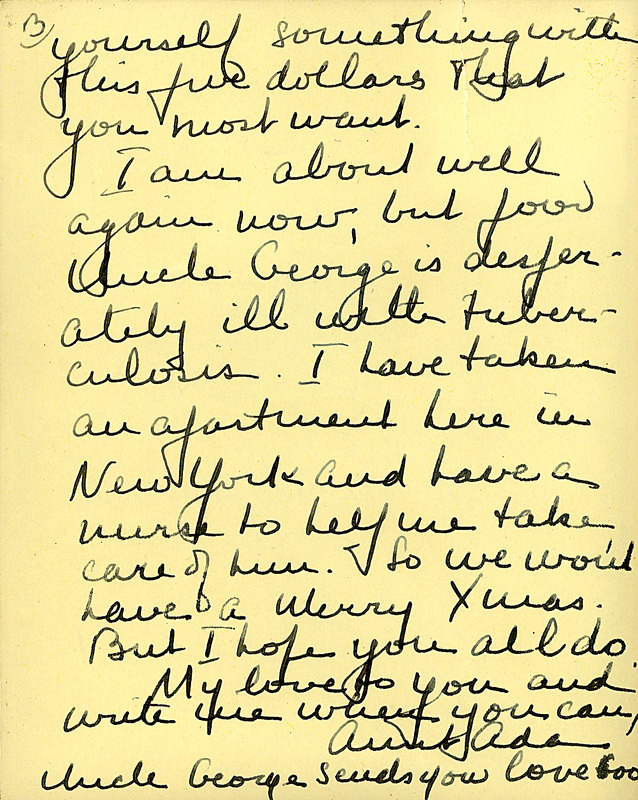 3
yourself something with
this five dollars that
you most want.
I am about well
again now, but poor
Uncle George is desper-
ately ill with tuber-
culosis. I have taken
an apartment here in
New York and have a
nurse to help me take
care of him. So we won't
have a Merry Xmas.
But I hope you all do.
My love to you and
write me when you can,
Aunt Ada
Uncle George sends you love too